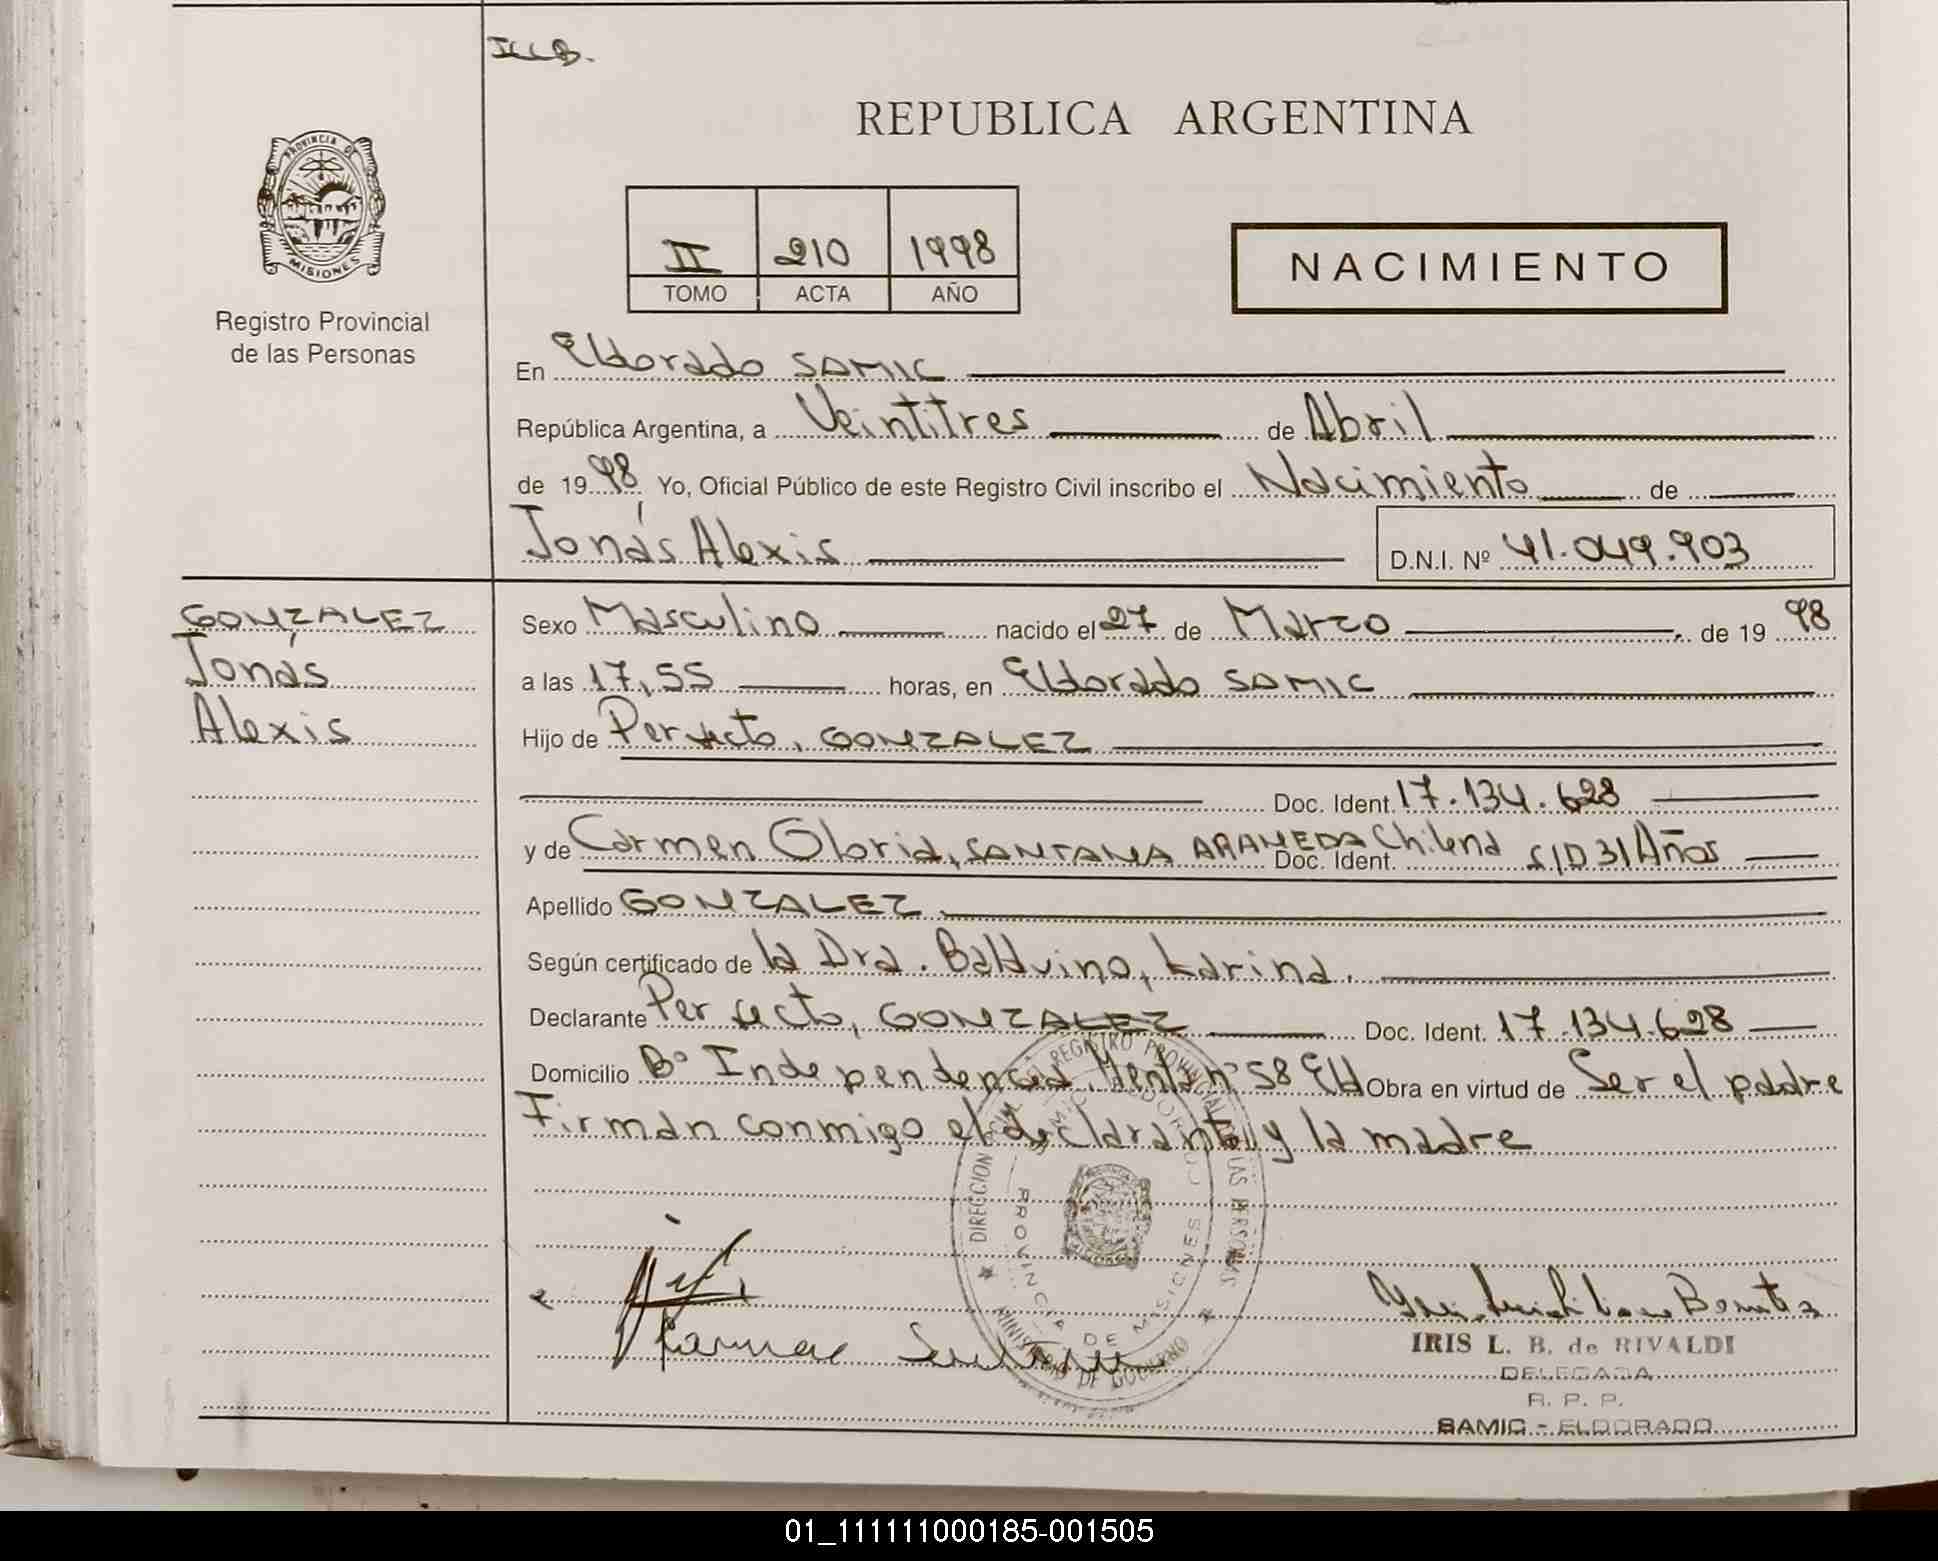 REPUBLICA ARGENTINA
PROVINCIA DE
MISIONES
Registro Provincial
de las Personas
II 210 1998
TOMO ACTA AÑO
NACIMIENTO
En Eldorado SAMIC
República Argentina, a Veintitres de Abril
de 1998 Yo, Oficial Público de este Registro Civil inscribo el Nacimiento de
Jonás Alexis D.N.I. Nº 41.049.903
GONZALEZ
Jonás
Alexis
Sexo Masculino nacido el 27 de Marzo de 1998
a las 17,55 horas, en Eldorado SAMIC
Hijo de Perfecto, GONZALEZ
Doc. Ident. 17.134.628
y de Carmen Gloria, SANTANA ARANEDA Chilena Doc. Ident. S/D 31 Años
Apellido GONZALEZ
Según certificado de la Dra. Balduino, Karina.
Declarante Perfecto, GONZALEZ Doc. Ident. 17.134.628
Domicilio Bº Independencia Menta nº 58 Eld Obra en virtud de Ser el padre
Firman conmigo el declarante y la madre
DIRECCION REGISTRO PROVINCIAL DE LAS PERSONAS
PROVINCIA DE MISIONES
MINISTERIO DE GOBIERNO
IRIS L. B. de RIVALDI
DELEGADA
R. P. P.
SAMIC - ELDORADO
01_111111000185-001505